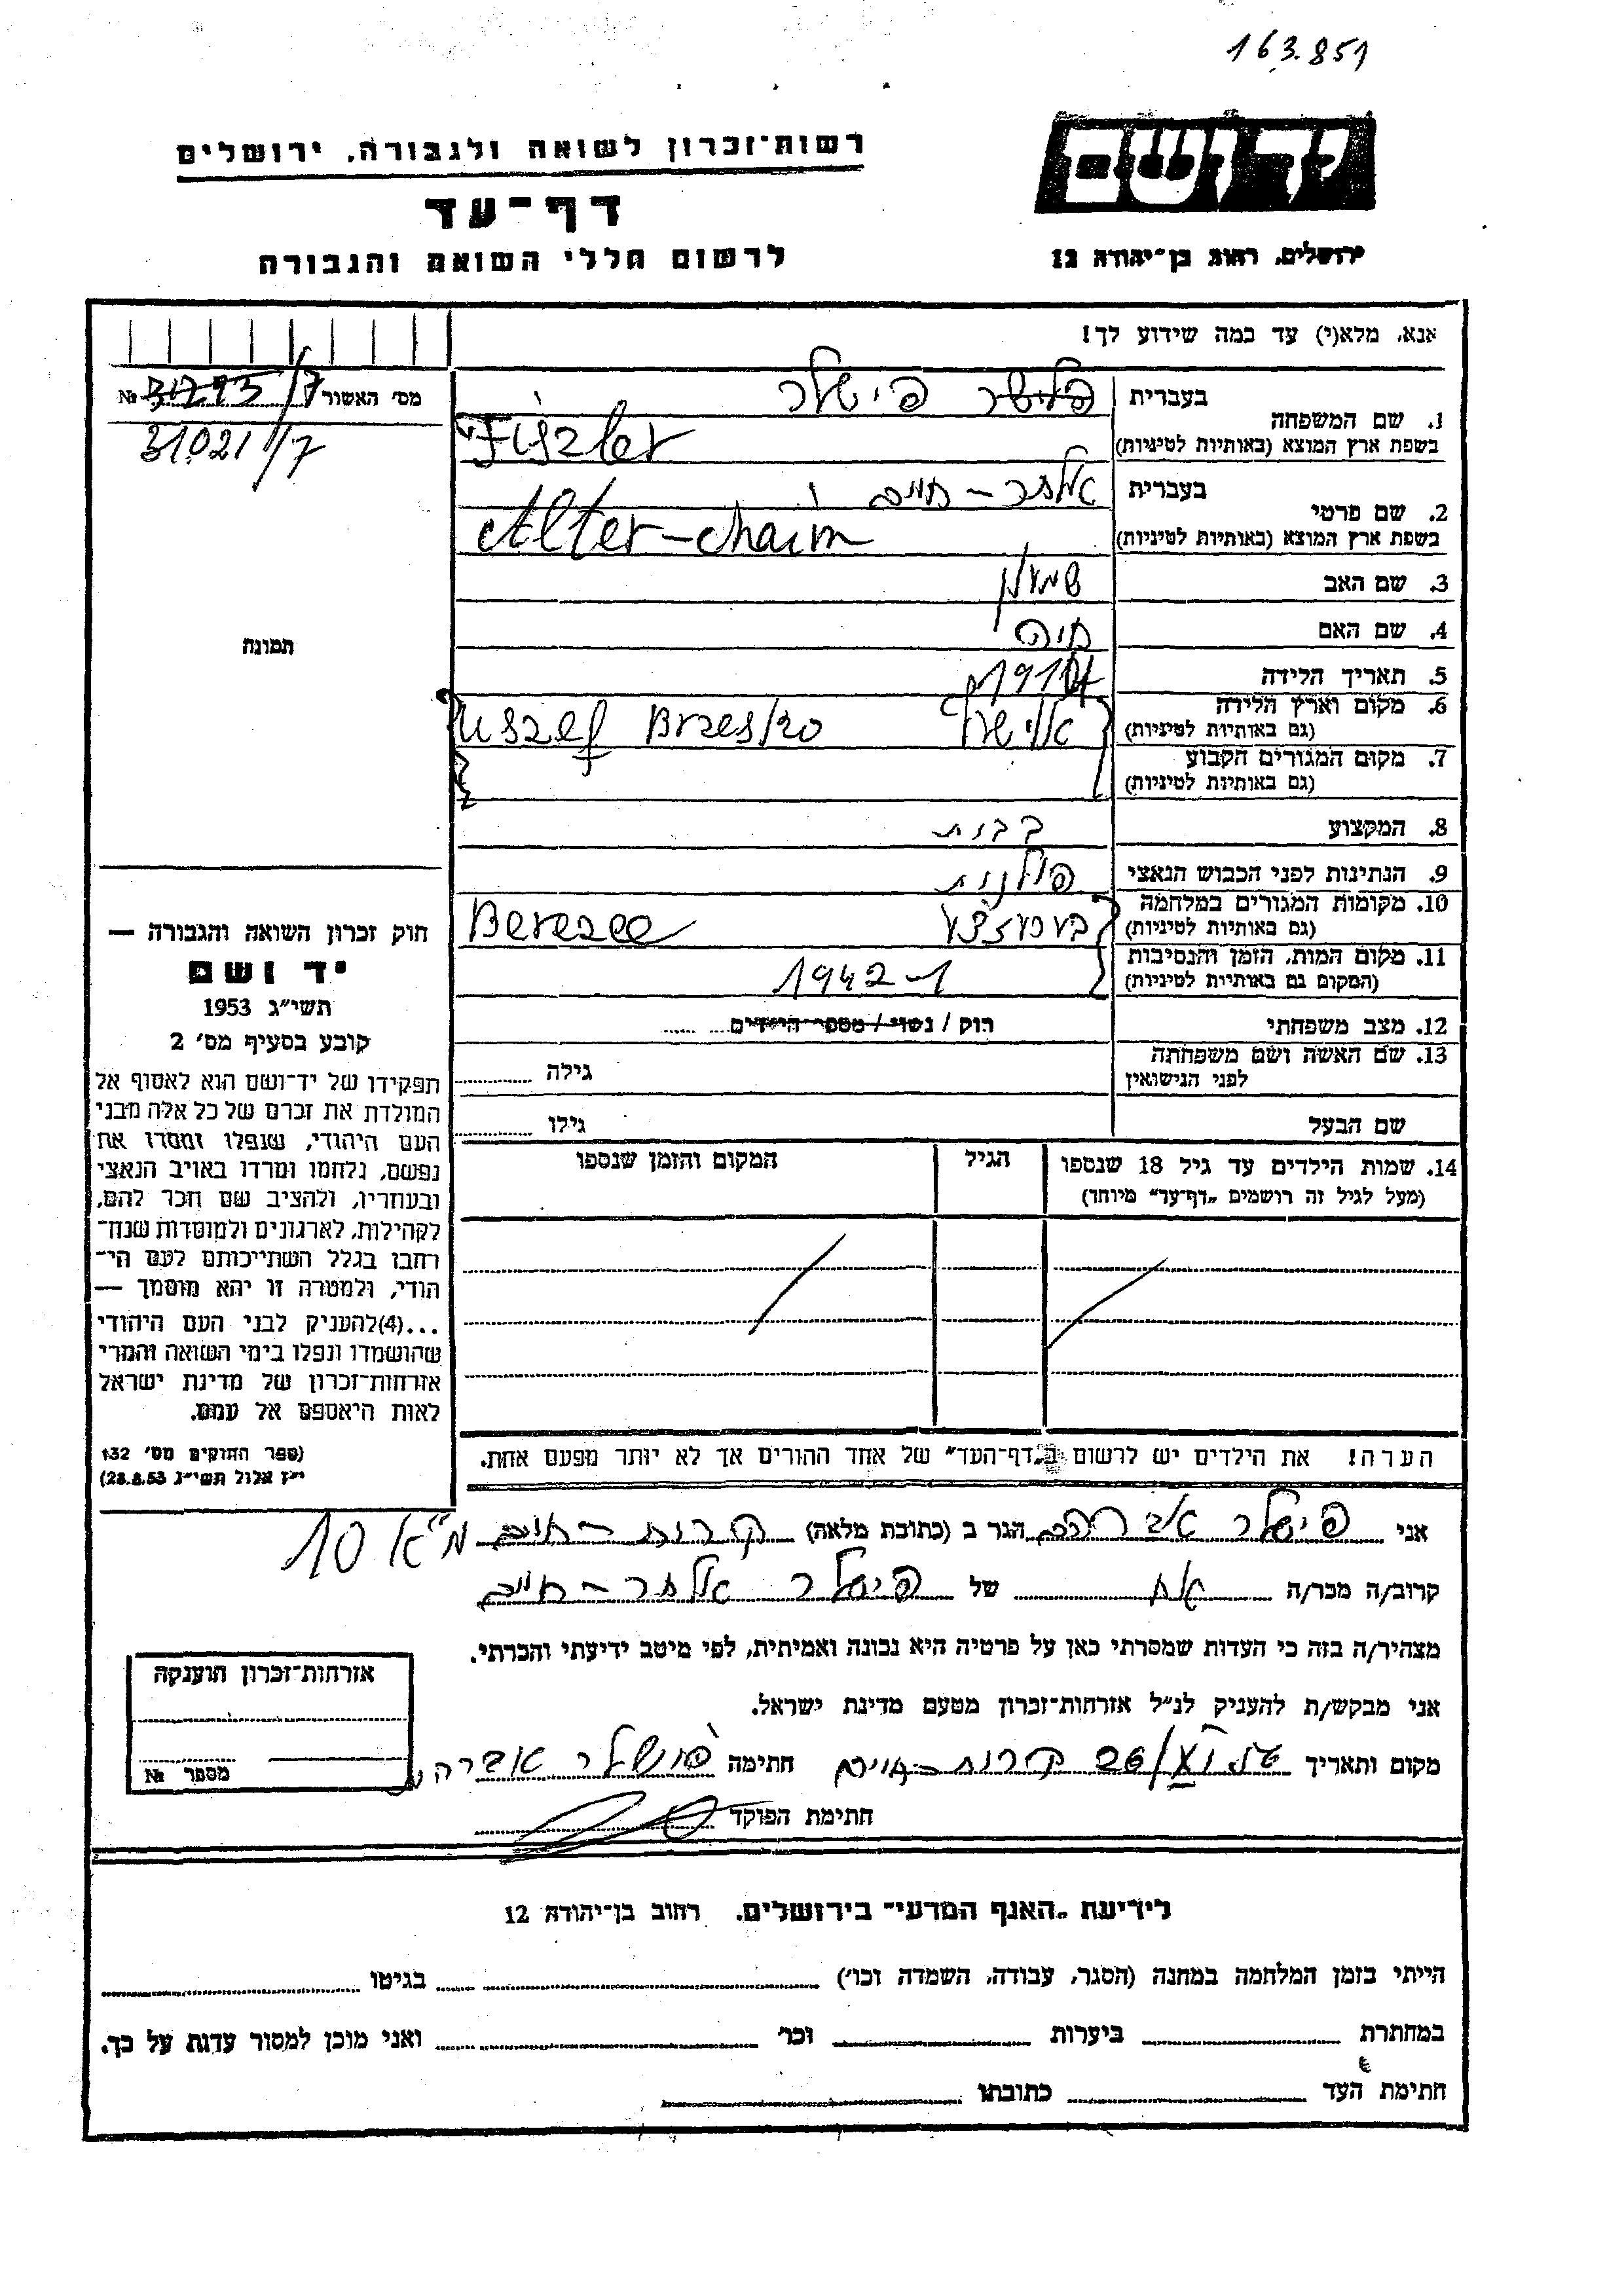 163.851
רשות־זכרון לשואה ולגבורה, ירושלים
יד ושם
דף־עד
לרשום חללי השואה והגבורה
ירושלים, רחוב בן־יהודה 12
אנא, מלא(י) עד כמה שידוע לך!
מס׳ האשור № 31293/7
31021/7
תמונה
1. שם המשפחה
בעברית פישלר
בשפת ארץ המוצא (באותיות לטיניות) Fiszler
2. שם פרטי
בעברית אלתר – חיים
בשפת ארץ המוצא (באותיות לטיניות) Alter – chaim
3. שם האב שמעון
4. שם האם חיה
5. תאריך הלידה
6. מקום וארץ הלידה
(גם באותיות לטיניות) Brzesko
7. מקום המגורים הקבוע
(גם באותיות לטיניות)
8. המקצוע
9. הנתינות לפני הכבוש הנאצי פולנית
10. מקומות המגורים במלחמה
(גם באותיות לטיניות)
11. מקום המות, הזמן והנסיבות
(המקום גם באותיות לטיניות) 1942
12. מצב משפחתי רוק / נשוי / מספר הילדים
13. שם האשה ושם משפחתה
לפני הנישואין גילה
שם הבעל גילו
14. שמות הילדים עד גיל 18 שנספו
(מעל לגיל זה רושמים „דף־עד״ מיוחד)
הגיל
המקום והזמן שנספו
הערה! את הילדים יש לרשום ב„דף־העד״ של אחד ההורים אך לא יותר מפעם אחת.
חוק זכרון השואה והגבורה —
יד ושם
תשי״ג 1953
קובע בסעיף מס׳ 2
תפקידו של יד־ושם הוא לאסוף אל
המולדת את זכרם של כל אלה מבני
העם היהודי, שנפלו ומסרו את
נפשם, נלחמו ומרדו באויב הנאצי
ובעוזריו, ולהציב שם וזכר להם,
לקהילות, לארגונים ולמוסדות שנח־
רבו בגלל השתייכותם לעם הי־
הודי, ולמטרה זו יהא מוסמך —
...(4)להעניק לבני העם היהודי
שהושמדו ונפלו בימי השואה והמרי
אזרחות־זכרון של מדינת ישראל
לאות היאספם אל עמם.
(ספר החוקים מס׳ 132
י״ז אלול תשי״ג 28.8.53)
אני פישלר אברהם הגר ב (כתובת מלאה) קרית – חיים מ״א 10
קרוב/ה מכר/ה אח של פישלר אלתר – חיים
מצהיר/ה בזה כי העדות שמסרתי כאן על פרטיה היא נכונה ואמיתית, לפי מיטב ידיעתי והכרתי.
אני מבקש/ת להעניק לנ״ל אזרחות־זכרון מטעם מדינת ישראל.
מקום ותאריך קרית – חיים חתימה פישלר אברהם
חתימת הפוקד
אזרחות־זכרון הוענקה
מספר №
לידיעת „האגף המדעי״ בירושלים. רחוב בן־יהודה 12
הייתי בזמן המלחמה במחנה (הסגר, עבודה, השמדה וכו׳) בגיטו
במחתרת ביערות וכו׳ ואני מוכן למסור עדות על כך.
חתימת העד כתובתו